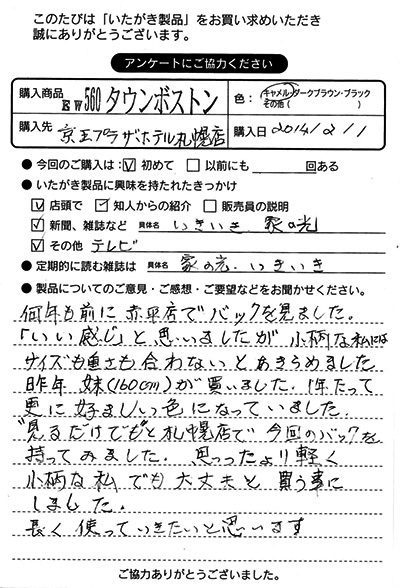 このたびは「いたがき製品」をお買い求めいただき
誠にありがとうございます。
アンケートにご協力ください
購入商品 EW560 タウンボストン 色: キャメル・ダークブラウン・ブラック その他( )
購入先 京王プラザホテル札幌店 購入日 2014/2/1
● 今回のご購入は: ☑ 初めて □ 以前にも 回ある
● いたがき製品に興味を持たれたきっかけ
☑ 店頭で ☑ 知人からの紹介 □ 販売員の説明
☑ 新聞、雑誌など 具体名 いきいき 家の光
☑ その他 テレビ
● 定期的に読む雑誌は 具体名 家の光・いきいき
● 製品についてのご意見・ご感想・ご要望などをお聞かせください。
何年も前に赤平店でバックを見ました。
「いい感じ」と思いましたが小柄な私には
サイズも重さも合わないとあきらめました
昨年 妹(160cm)が買いました. 1年たって
更に好ましい色になっていました
"見るだけでも"と札幌店で今回のバックを
持ってみました. 思ったより軽く
小柄な私でも大丈夫と買う事に
しました.
長く使っていきたいと思います
ご協力ありがとうございました。